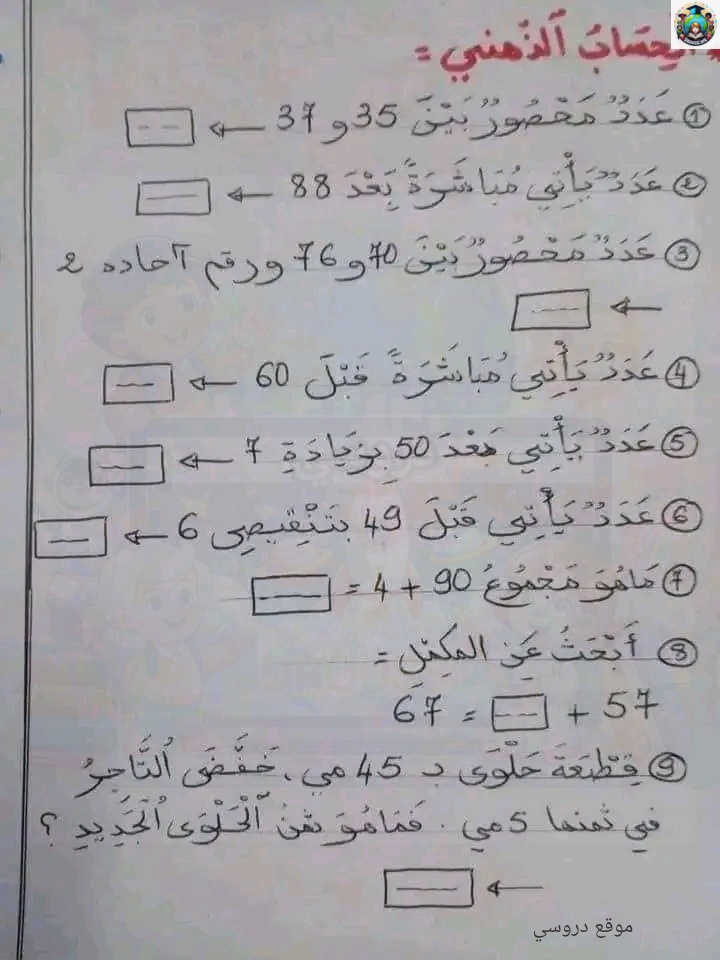 الحِسَابُ الذّهني =
① عَدَدٌ مَحْصُورٌ بَيْنَ 35 و 37 ←
② عَدَدٌ يَأْتِي مُبَاشَرَةً بَعْدَ 88 ←
③ عَدَدٌ مَحْصُورٌ بَيْنَ 70 و 76 و رقم آحاده 2
←
④ عَدَدٌ يَأْتِي مُبَاشَرَةً قَبْلَ 60 ←
⑤ عَدَدٌ يَأْتِي بَعْدَ 50 بِزِيَادَةِ 7 ←
⑥ عَدَدٌ يَأْتِي قَبْلَ 49 بِتَنْقِيصِ 6 ←
⑦ مَاهُوَ مَجْمُوعُ 90 + 4 =
⑧ أَبْحَثُ عَنِ المكمّلِ =
57 + = 67
⑨ قِطْعَةَ حَلْوَى بـ 45 مي . خَفَّضَ التَّاجِرُ
في ثمنها 5 مي . فَمَاهُوَ ثَمَنُ الْحَلْوَى الْجَدِيدِ ؟
←
موقع دروسي